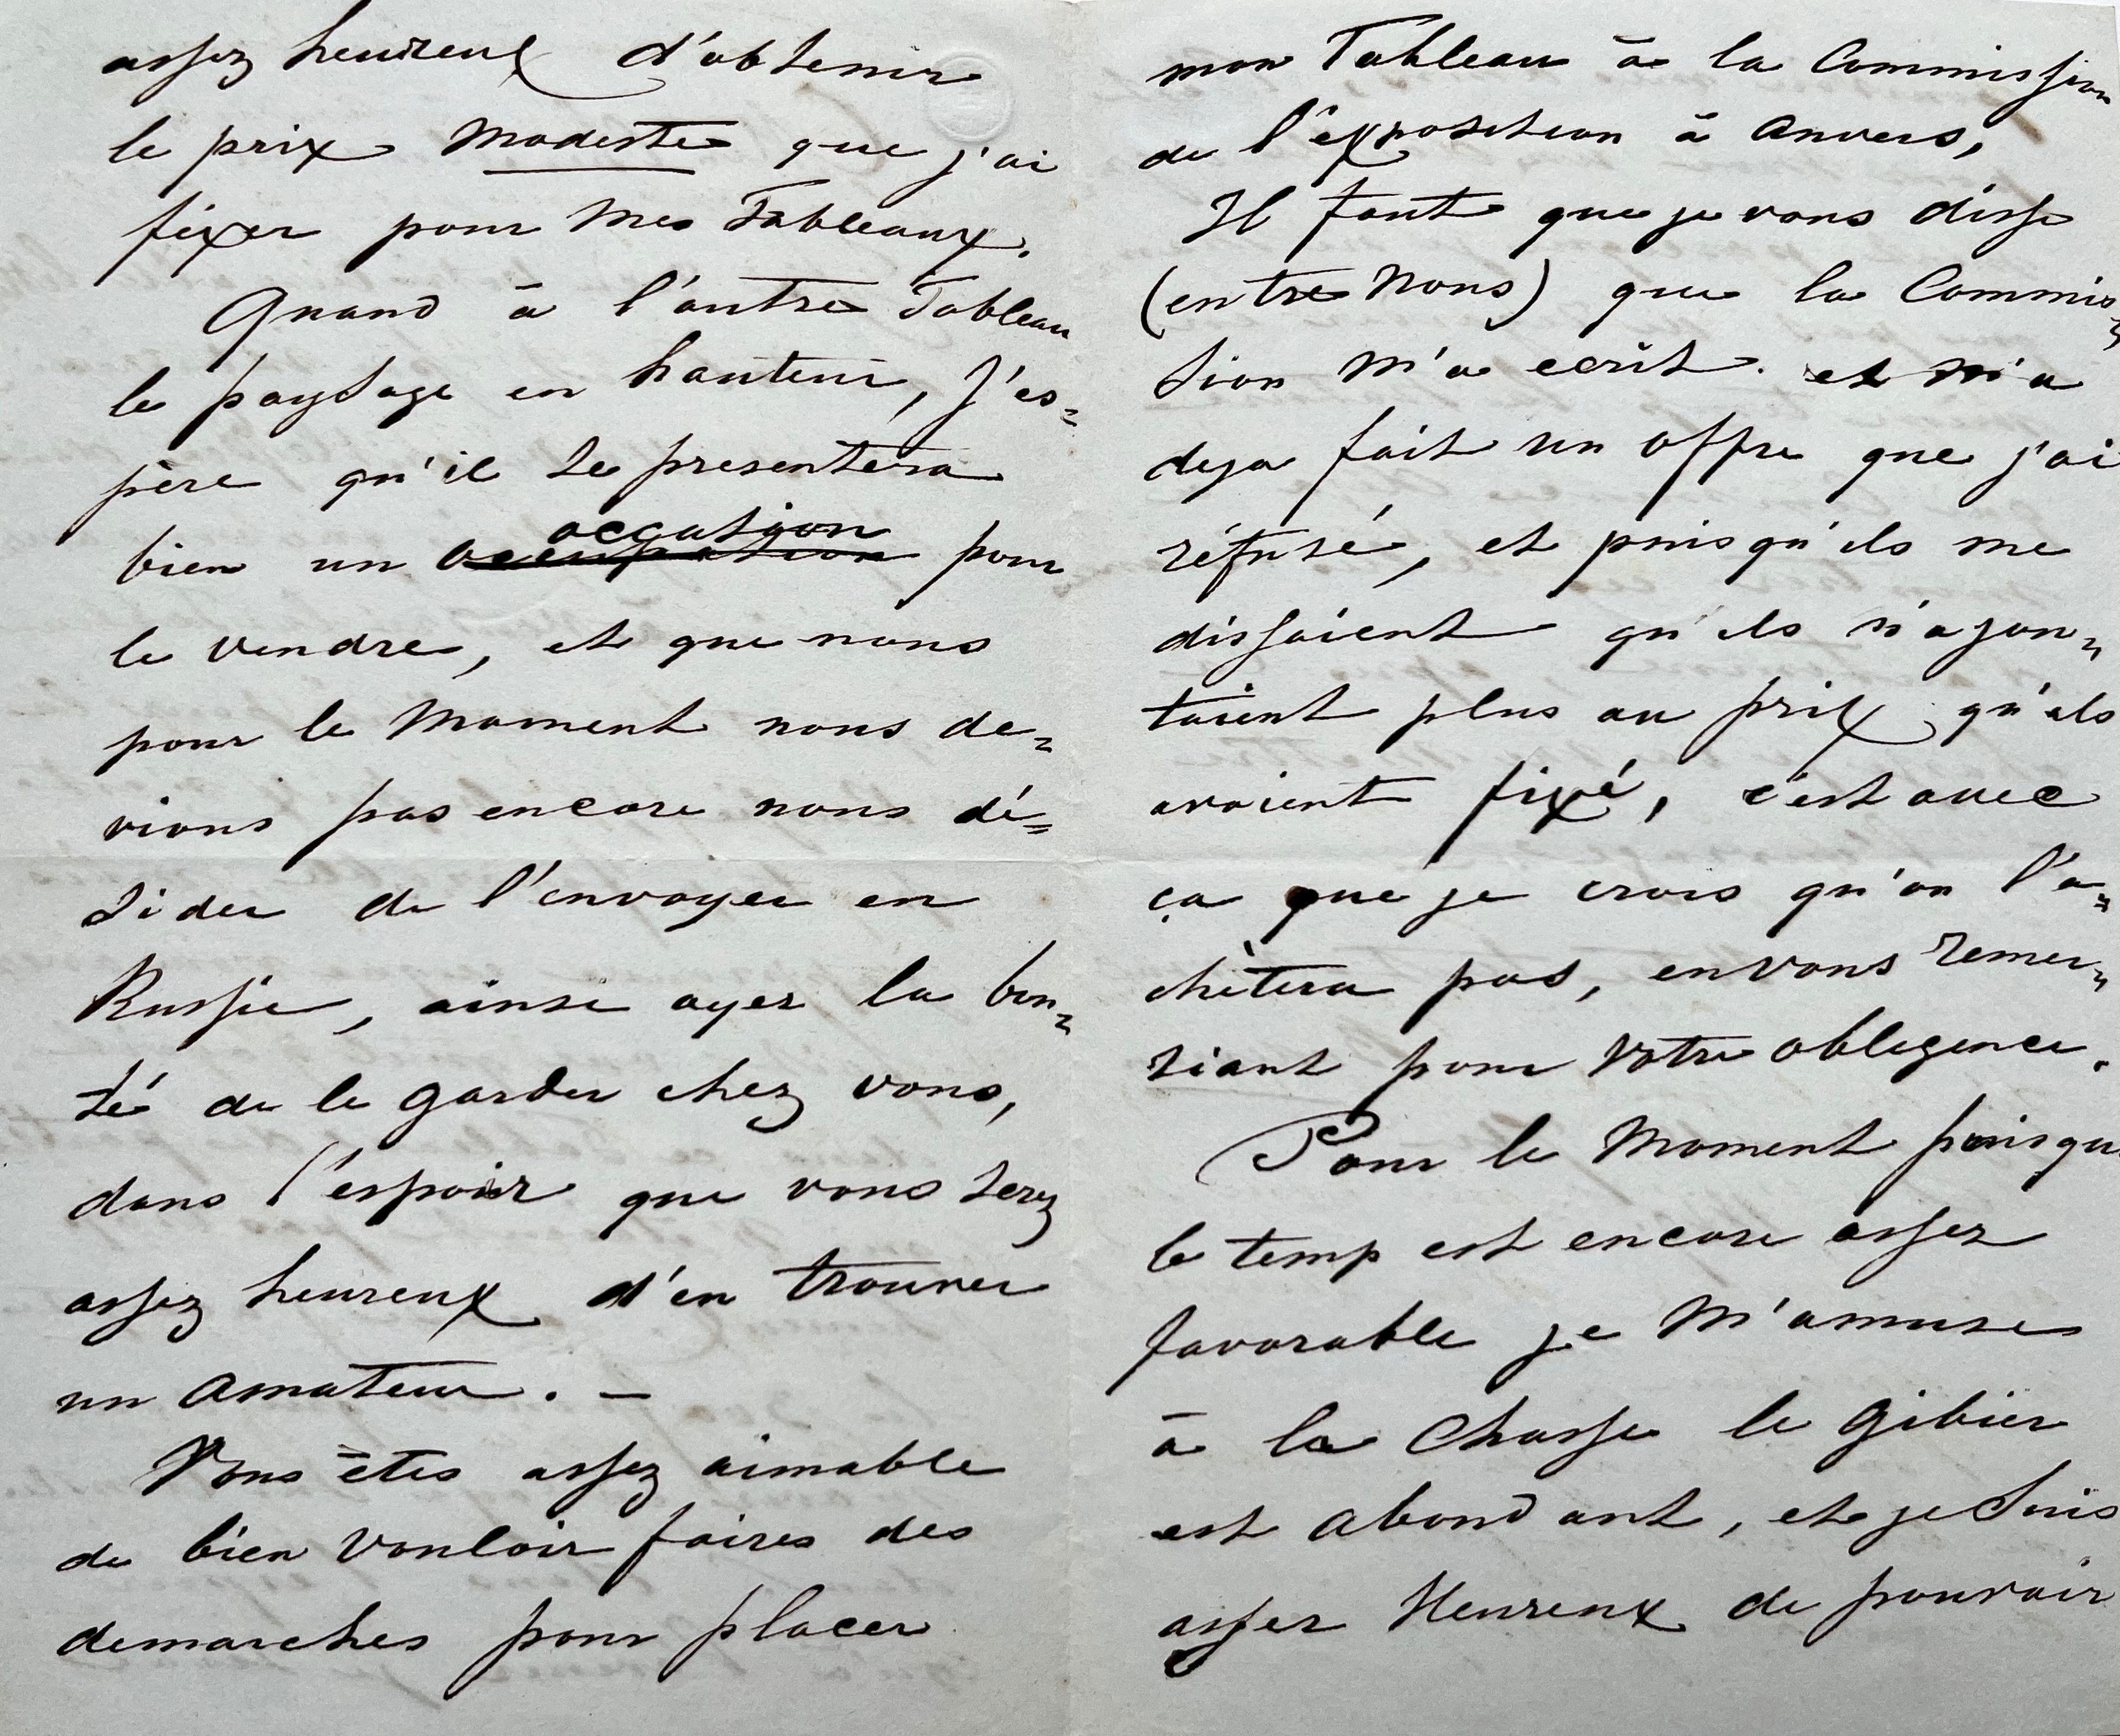 assez heureux d'obtenir
le prix modeste que j'ai
fixer pour mes Tableaux.
Quand à l'autre Tableau
le paysage en hauteur, j'es=
père qu'il se presentera
occasion
bien un occupation pour
le vendre, et que nous
pour le moment nous de=
vions pas encore nous dé=
sider de l'envoyer en
Russie, ainsi ayez la bon=
té de le garder chez vous,
dans l'espoir que vous serez
assez heureux d'en trouver
un amateur. —
Vous êtes assez aimable
de bien vouloir faires des
demarches pour placer
mon Tableau à la Commission
de l'exposition à Anvers,
Il faut que je vous disse
(entre nous) que la Commis=
sion m'a ecrit. et m'a
deja fait un offre que j'ai
réfusé, et puisqu'ils me
dissaient qu'ils n'ajou=
taient plus au prix qu'ils
avaient fixé, c'est avec
ça que je crois qu'on l'a=
chètera pas, en vous remer=
siant pour votre obligence.
Pour le moment puisque
le temp est encore assez
favorable je m'amuse
à la Chasse le gibier
est abondant, et je suis
assez Heureux de pouvoir